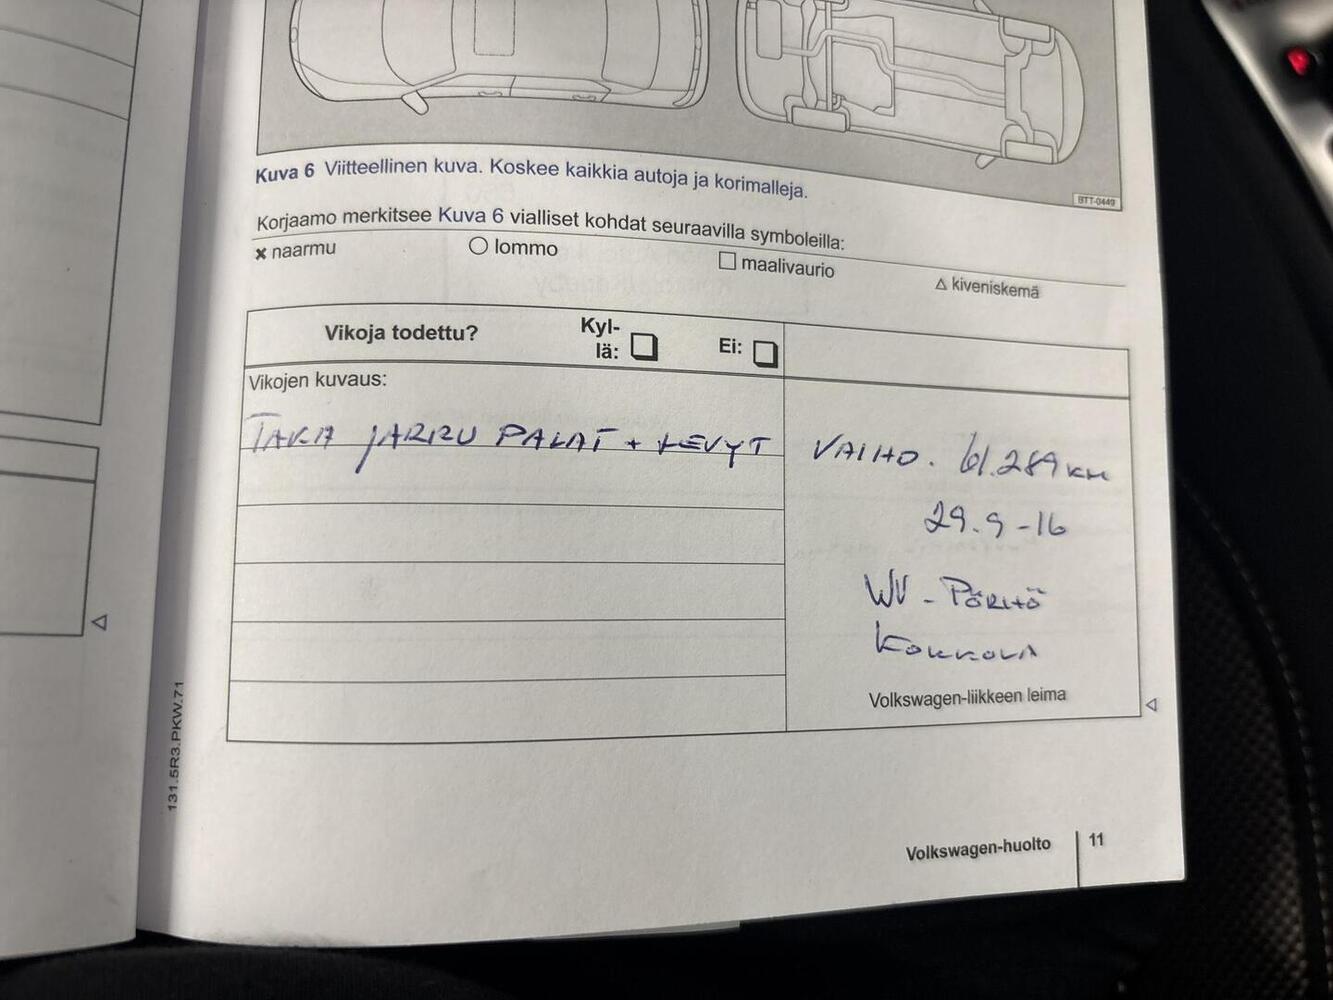 BTT-0449
Kuva 6 Viitteellinen kuva. Koskee kaikkia autoja ja korimalleja.
Korjaamo merkitsee Kuva 6 vialliset kohdat seuraavilla symboleilla:
× naarmu ○ lommo □ maalivaurio △ kiveniskemä
Vikoja todettu? Kyl-
lä: ❑ Ei: ❑
Vikojen kuvaus:
TAKA JARRU PALAT + LEVYT VAIHD. 61.289 km
29.9-16
WV - PÖRHÖ
KOKKOLA
Volkswagen-liikkeen leima
131.5R3.PKW.71
Volkswagen-huolto 11